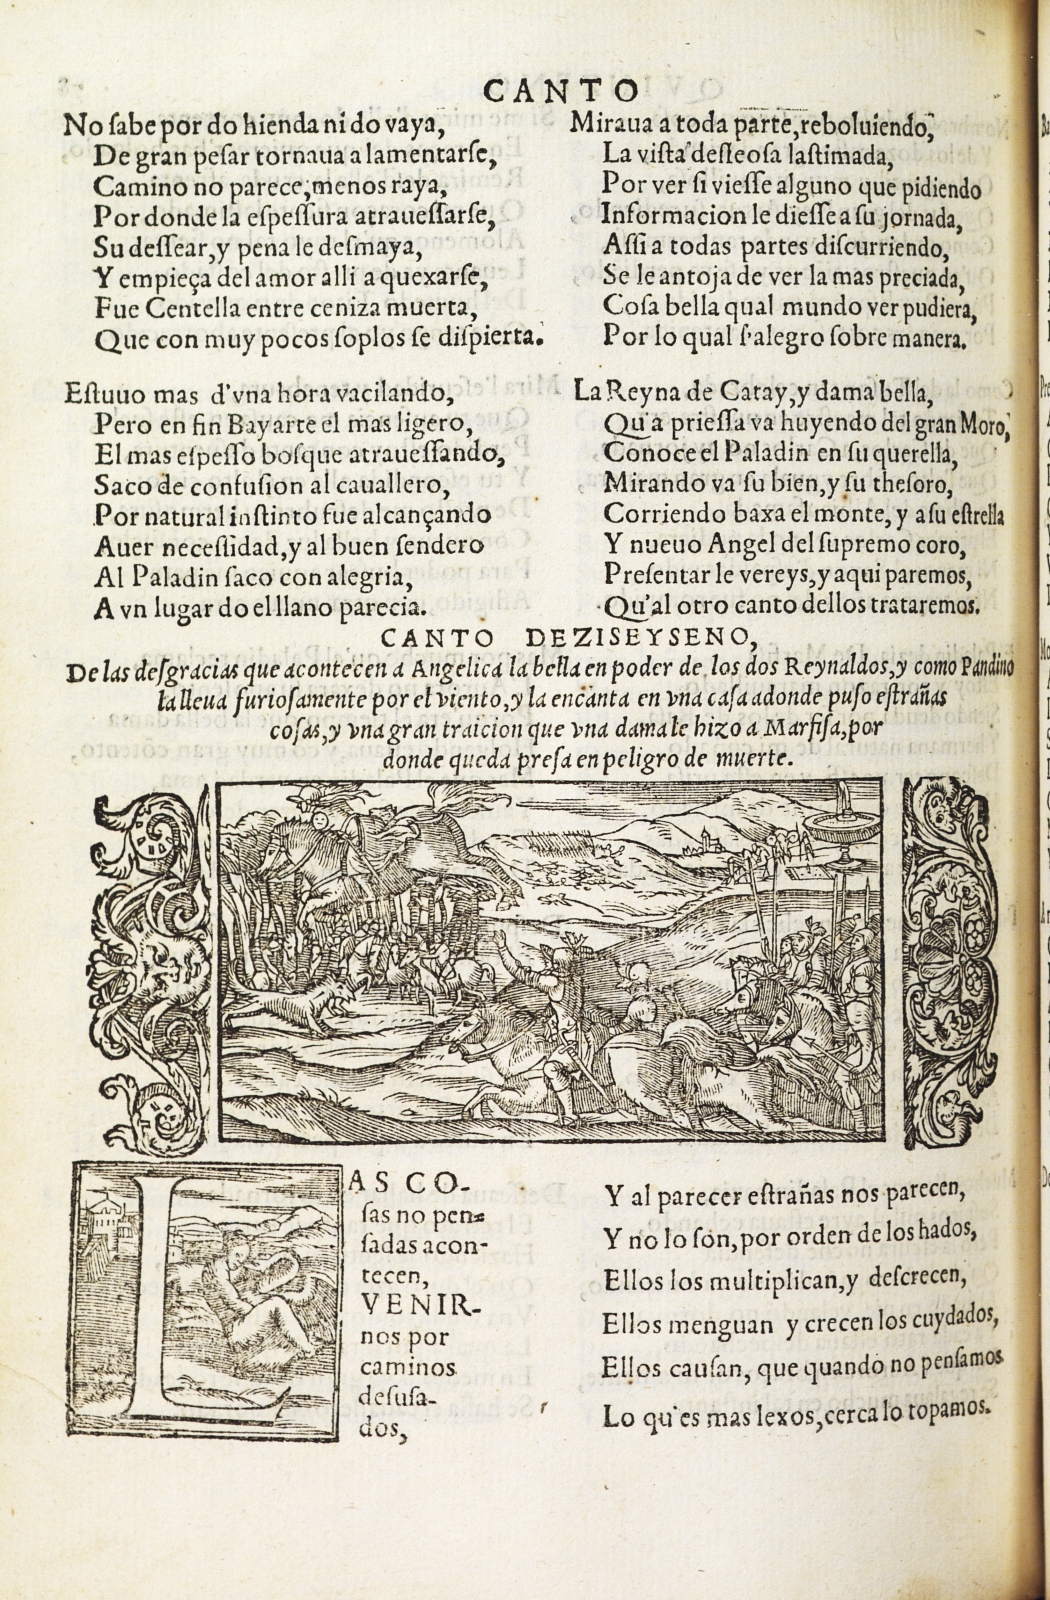 CANTO
No ſabe por do hienda ni do vaya,
De gran peſar tornaua a lamentarſe,
Camino no parece, menos raya,
Por donde la eſpeſſura atraueſſarſe,
Su deſſear, y pena le deſmaya,
Y empieça del amor alli a quexarſe,
Fue Centella entre ceniza muerta,
Que con muy pocos ſoplos ſe diſpierta.
Eſtuuo mas d'vna hora vacilando,
Pero en fin Bayarte el mas ligero,
El mas eſpeſſo boſque atraueſſando,
Saco de confuſion al cauallero,
Por natural inſtinto fue alcançando
Auer neceſſidad, y al buen ſendero
Al Paladin ſaco con alegria,
A vn lugar do el llano parecia.
Miraua a toda parte, reboluiendo,
La viſta deſſeoſa laſtimada,
Por ver ſi vieſſe alguno que pidiendo
Informacion le dieſſe a ſu jornada,
Aſſi a todas partes diſcurriendo,
Se le antoja de ver la mas preciada,
Coſa bella qual mundo ver pudiera,
Por lo qual ſ'alegro ſobre manera.
La Reyna de Catay, y dama bella,
Qu'a prieſſa va huyendo del gran Moro,
Conoce el Paladin en ſu querella,
Mirando va ſu bien, y ſu theſoro,
Corriendo baxa el monte, y a ſu eſtrella
Y nueuo Angel del ſupremo coro,
Preſentar le vereys, y aqui paremos,
Qu'al otro canto dellos trataremos.
CANTO DEZISEYSENO,
De las deſgracias que acontecen a Angelica la bella en poder de los dos Reynaldos, y como Pandino
la lleua furioſamente por el viento, y la encanta en vna caſa adonde puſo eſtrañas
coſas, y vna gran traicion que vna dama le hizo a Marfiſa, por
donde queda preſa en peligro de muerte.
LAS CO-
ſas no pen-
ſadas acon-
tecen,
VENIR-
nos por
caminos
deſuſa-
dos,
Y al parecer eſtrañas nos parecen,
Y no lo ſon, por orden de los hados,
Ellos los multiplican, y deſcrecen,
Ellos menguan y crecen los cuydados,
Ellos cauſan, que quando no penſamos
Lo qu'es mas lexos, cerca lo topamos.